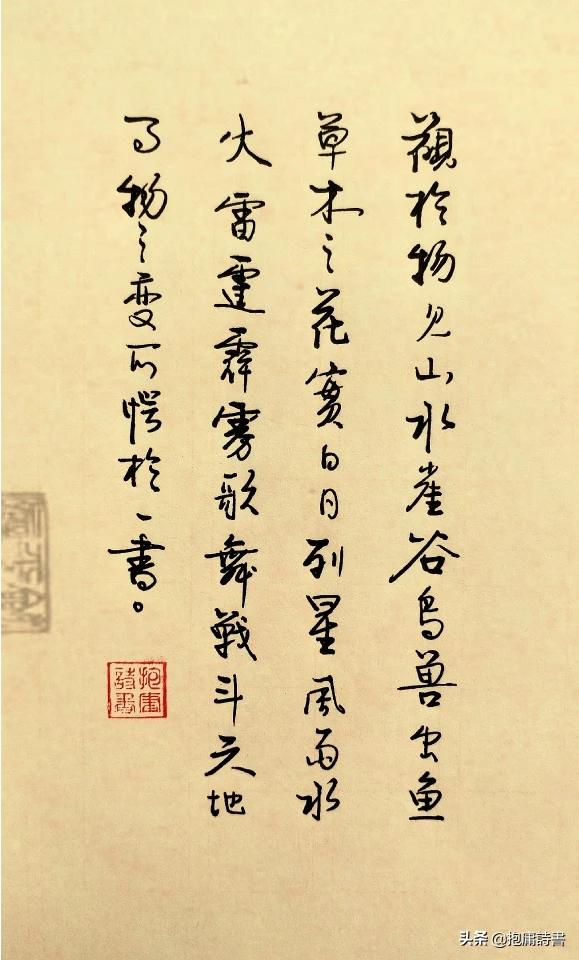 觀於物见山水崖谷鸟兽虫鱼
草木之花實日月列星風雨水
火雷霆霹雳歌舞戰斗天地
事物之变可愕於一書。
抱庸詩書
头条 @抱庸詩書